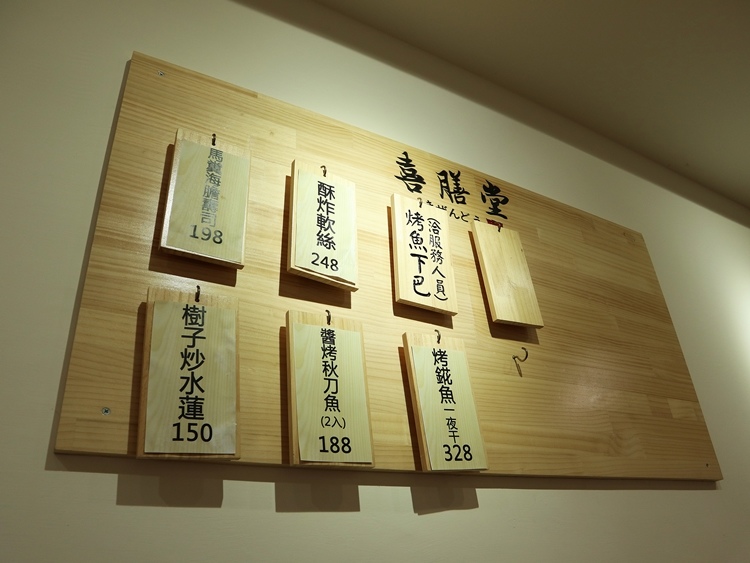 喜膳堂
きぜんどう
馬糞海膽壽司
198
酥炸軟絲
248
(洽服務人員)
烤魚下巴
樹子炒水蓮
150
醬烤秋刀魚
(2入)
188
烤鯱魚一夜干
328